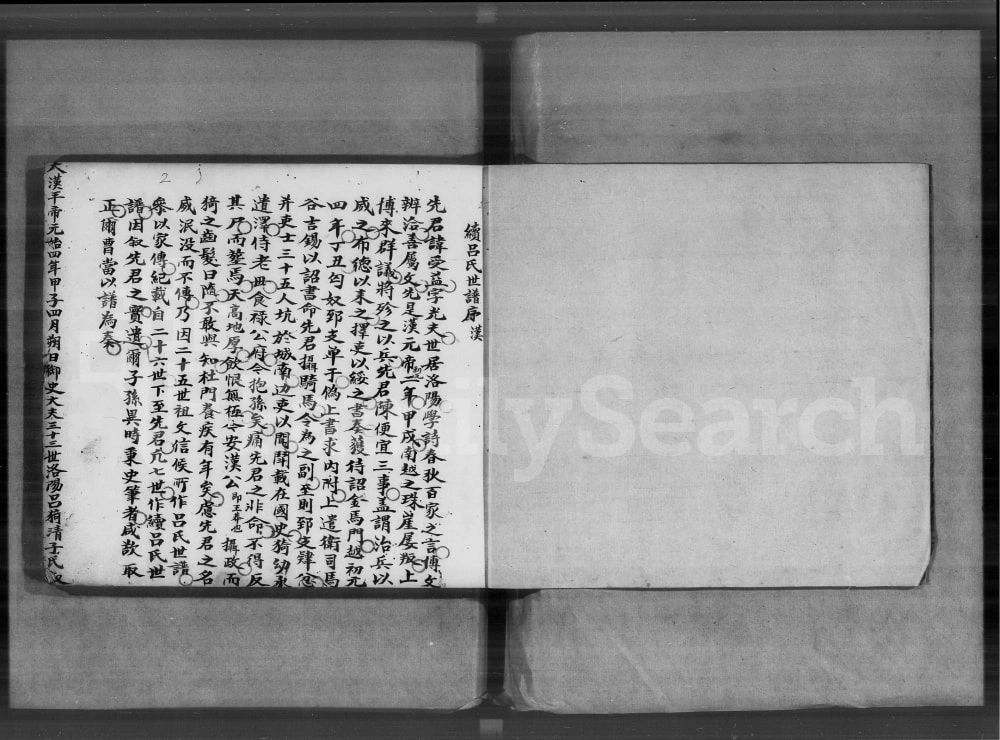 續吕氏世譜序 漢
先君諱受益字光夫世居洛陽學詩春秋百家之言博文
辨洽善属文先是漢元帝初元二年甲戌南越之珠崖屡叛上
博來群議將殄之以兵先君陳便宜三事盖謂治兵以
威之布德以来之擇吏以綏之書奏獲待詔金馬門越初元
四年丁丑匈奴郅支单于偽上書求内附上遣衛司馬
谷吉錫以詔書命先君攝騎馬令為之副至則郅支肆忿
并吏士三十五人坑於城南边吏以聞聞載在國史猗幼承
遺澤侍老毋食禄公府今抱孫矣痛先君之非命不得反
其乃而塟焉天高地厚飲恨無極今安漢公即王莽也攝政而
猗之齒髮日隨不敢與知杜門養疾有年矣慮先君之名
或泯没而不傳乃因二十五世祖文信候所作吕氏世譜
參以家傳紀載自二十六世下至先君凢七世作續吕氏世
譜因叙先君之實遺爾子孫異時秉史筆者咸敢取
正爾曹當以譜為秦
大漢平帝元始四年甲子四月朔日御史大夫三十三世洛陽吕猗清子氏
2
FamilySearch